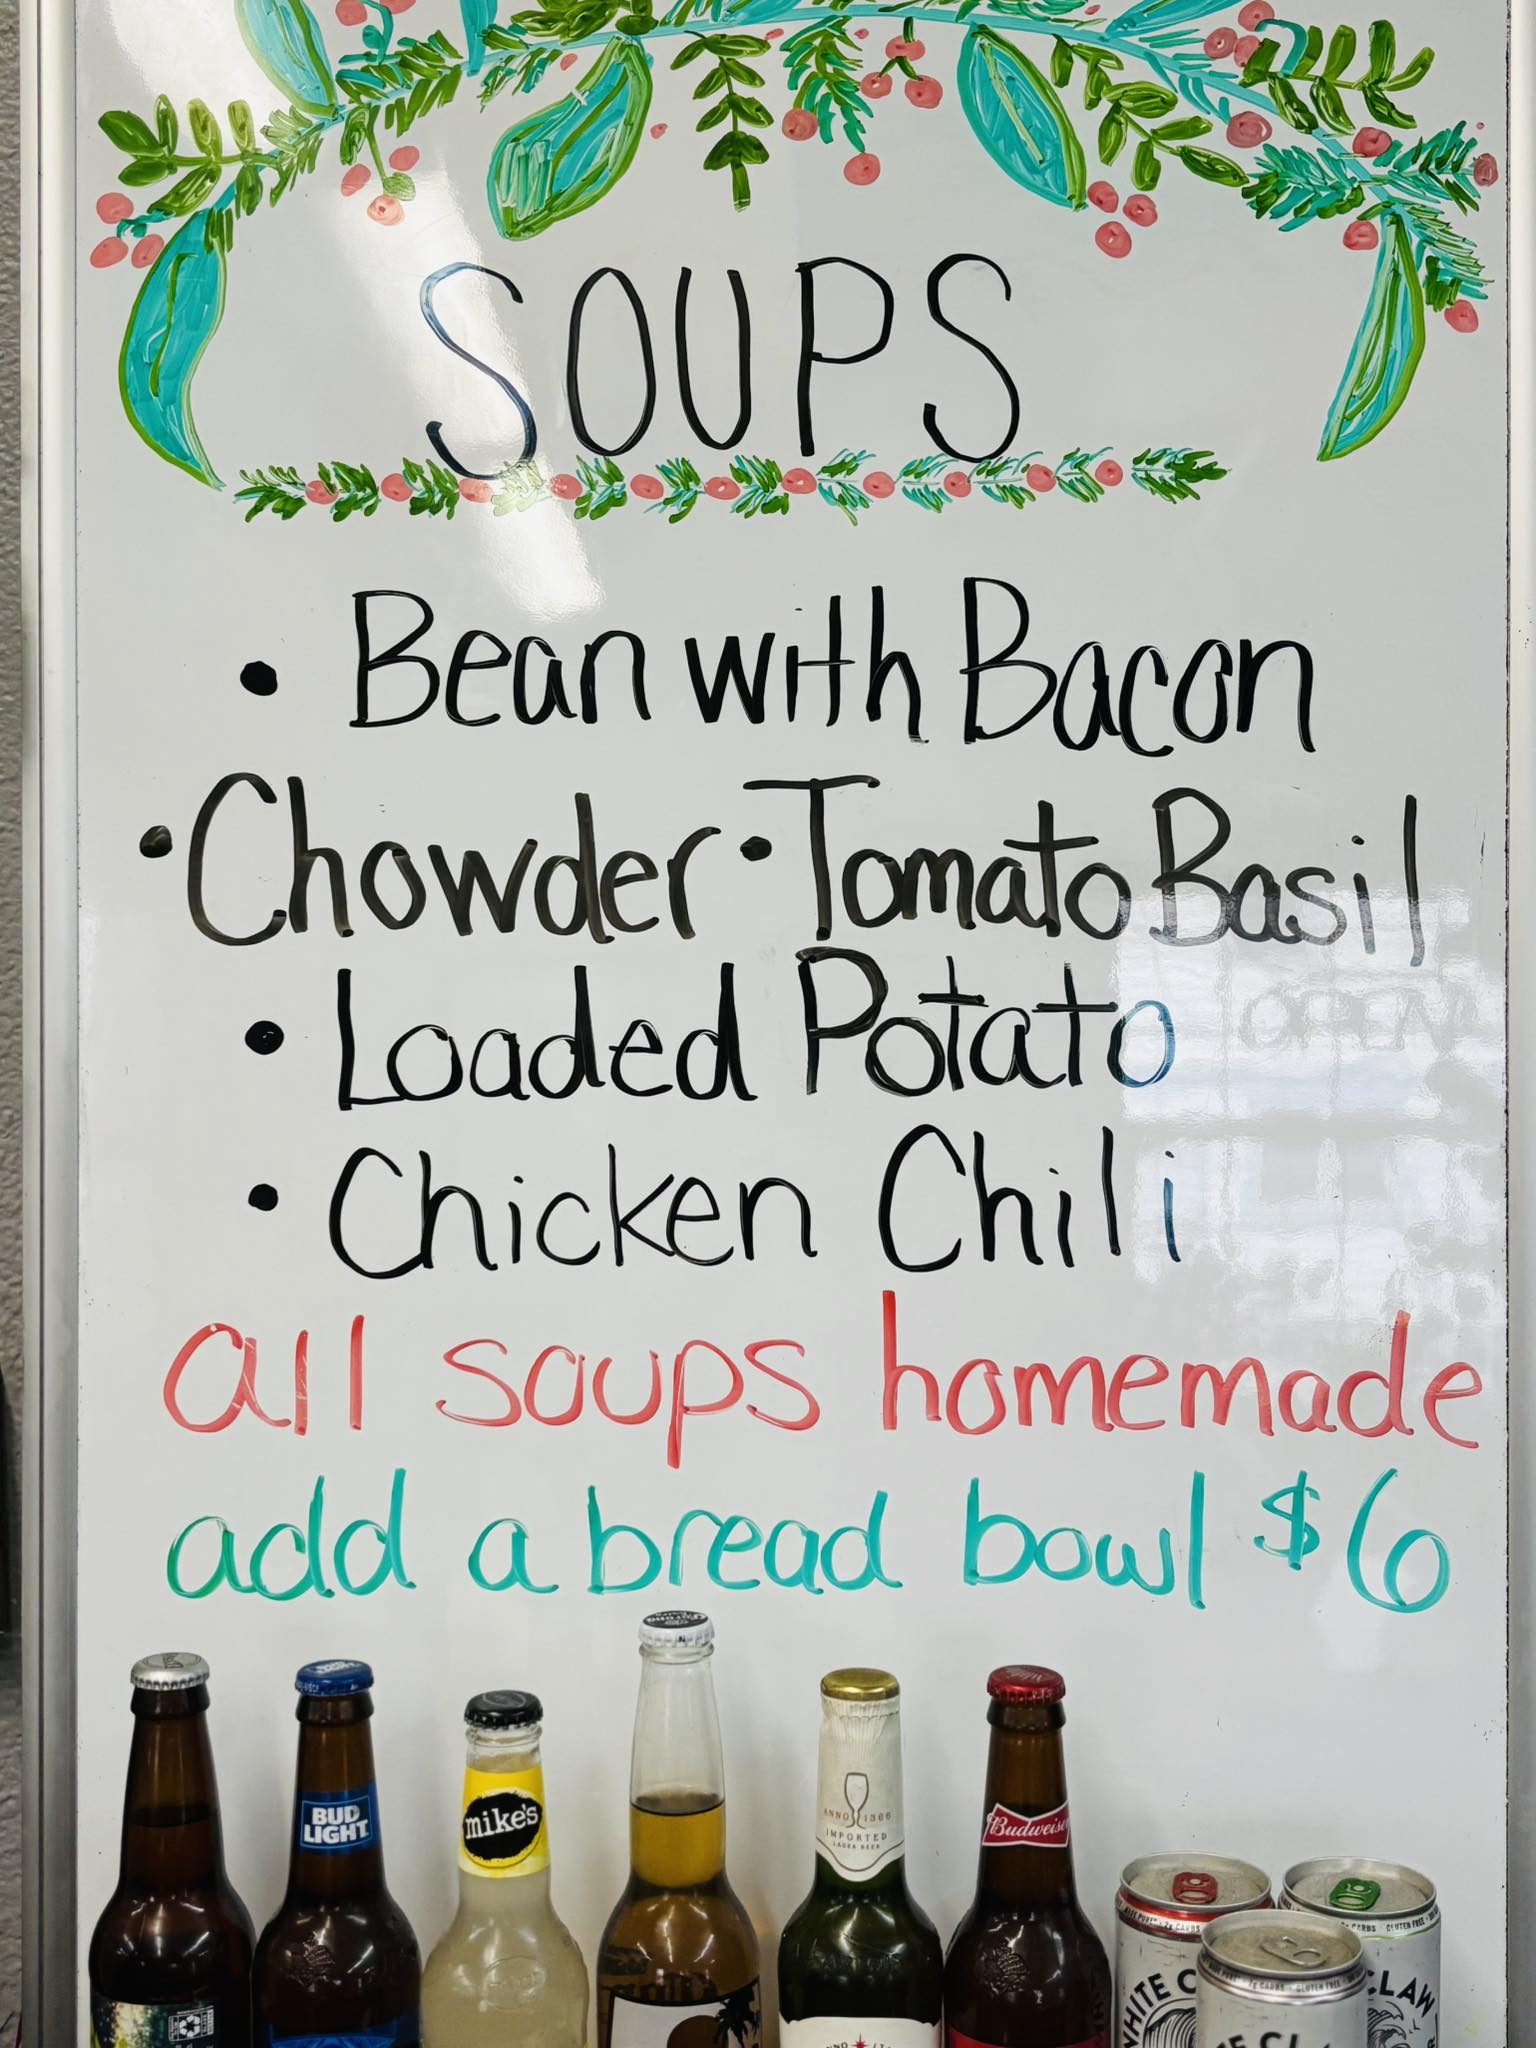 SOUPS
• Bean with Bacon
• Chowder • Tomato Basil
• Loaded Potato
• Chicken Chili
all soups homemade
add a bread bowl $6
OPEN
BUD
LIGHT
mike's
ANNO 1366
IMPORTED
LAGER BEER
Budweiser
WHITE C
CLAW
TE CL